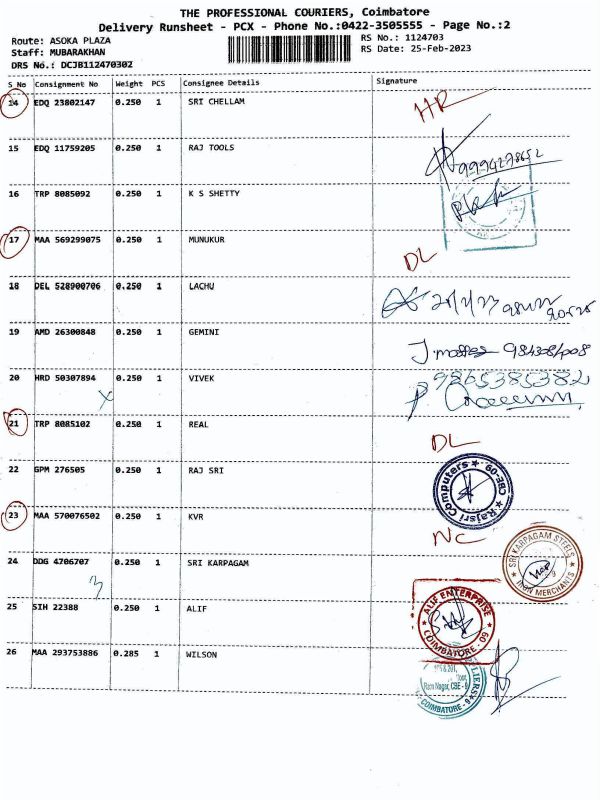 THE PROFESSIONAL COURIERS, Coimbatore
Delivery Runsheet - PCX - Phone No.:0422-3505555 - Page No.:2
Route: ASOKA PLAZA
RS No.: 1124703
Staff: MUBARAKHAN
RS Date: 25-Feb-2023
DRS No.: DCJB112470302
S_No Consignment No Weight PCS Consignee Details Signature
14 EDQ 23802147 0.250 1 SRI CHELLAM HR
15 EDQ 11759205 0.250 1 RAJ TOOLS 9994278652
16 TRP 8085092 0.250 1 K S SHETTY
17 MAA 569299075 0.250 1 MUNUKUR DL
18 DEL 528900706 0.250 1 LACHU
19 AMD 26300848 0.250 1 GEMINI
20 HRD 50307894 0.250 1 VIVEK 9865385382
X
21 TRP 8085102 0.250 1 REAL DL
22 GPM 276505 0.250 1 RAJ SRI
Rajsri Computers ★ CBE-09 ★
23 MAA 570076502 0.250 1 KVR NC
24 DDG 4706707 0.250 1 SRI KARPAGAM
SRI KARPAGAM STEELS
IRON MERCHANTS
25 SIH 22388 0.250 1 ALIF
ALIF ENTERPRISE
COIMBATORE - 09
26 MAA 293753886 0.285 1 WILSON
Ram Nagar, CBE - 9
COIMBATORE - 9